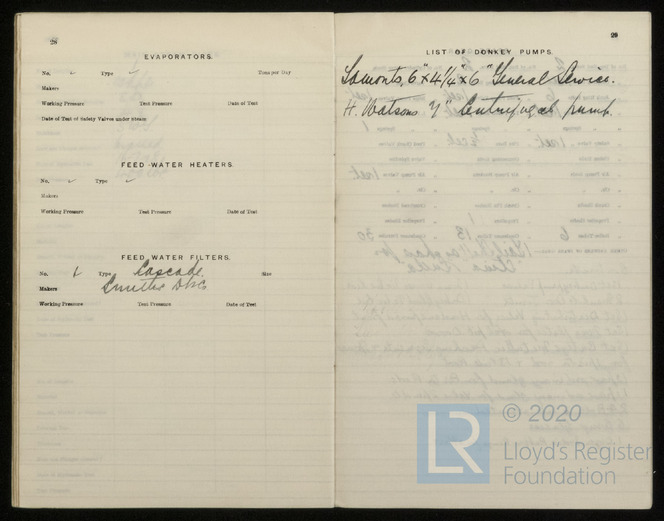 28
EVAPORATORS.
No. Type Tons per Day
Makers
Working Pressure Test Pressure Date of Test
Date of Test of Safety Valves under steam
FEED WATER HEATERS.
No. Type
Makers
Working Pressure Test Pressure Date of Test
FEED WATER FILTERS.
No. 1 Type Cascade. Size
Makers
Working Pressure Test Pressure Date of Test
29
LIST OF DONKEY PUMPS.
Lamonts, 6" x 4 1/4" x 6" General Service.
H. Watsons 4" Centrifugal pump.
© 2020
LR
Lloyd's Register
Foundation